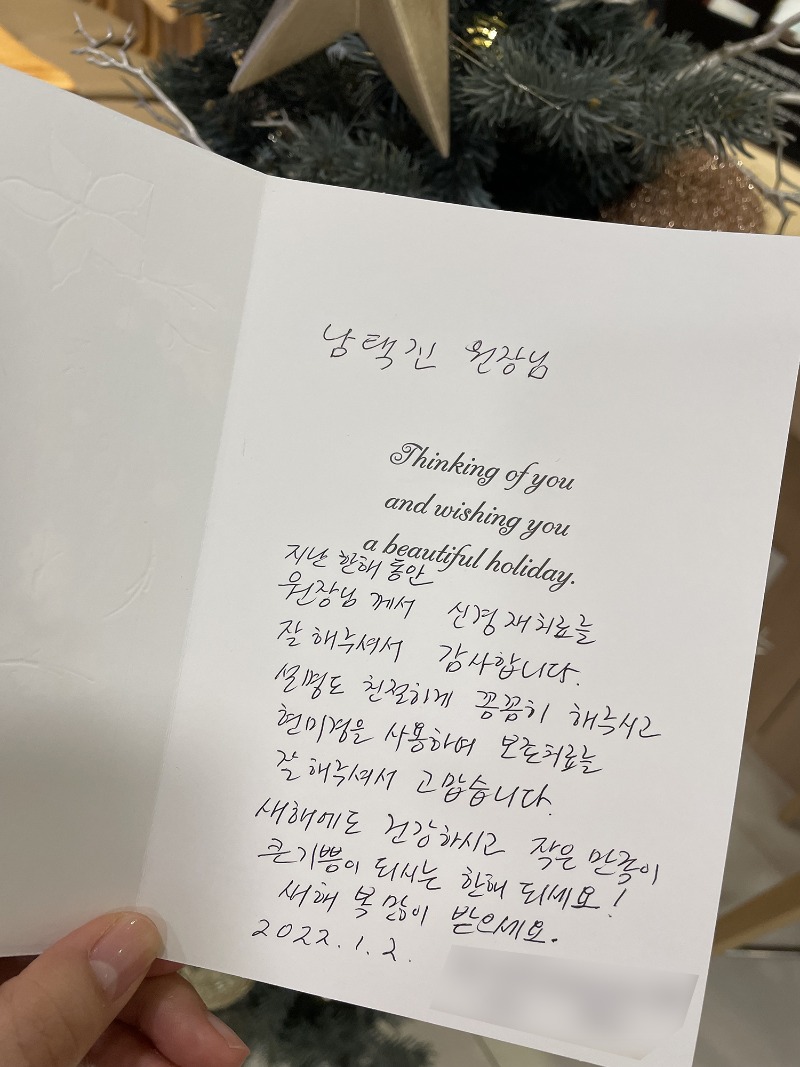 남택진 원장님
Thinking of you
and wishing you
a beautiful holiday.
지난 한해 동안
원장님 께서 신경재치료를
잘 해주셔서 감사합니다.
설명도 친절하게 꼼꼼히 해주시고
현미경을 사용하여 보존치료를
잘 해주셔서 고맙습니다.
새해에도 건강하시고 작은 만족이
큰기쁨이 되시는 한해 되세요!
새해 복 많이 받으세요.
2022.1.2.